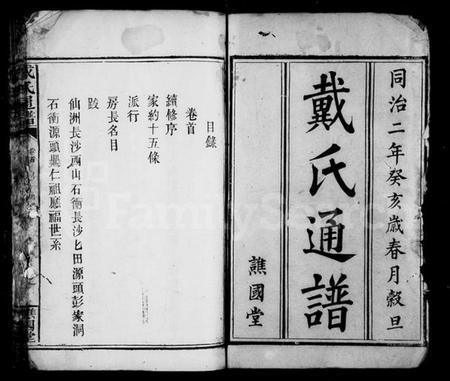 同治二年癸亥歲春月穀旦
戴氏通譜
譙國堂
目錄
卷首
續修序
家約十五條
派行
房長名目
跋
仙洲長沙西山石衝長沙匕田源頭彭家洞
石衝源頭興仁祖應福世系
FamilySearch